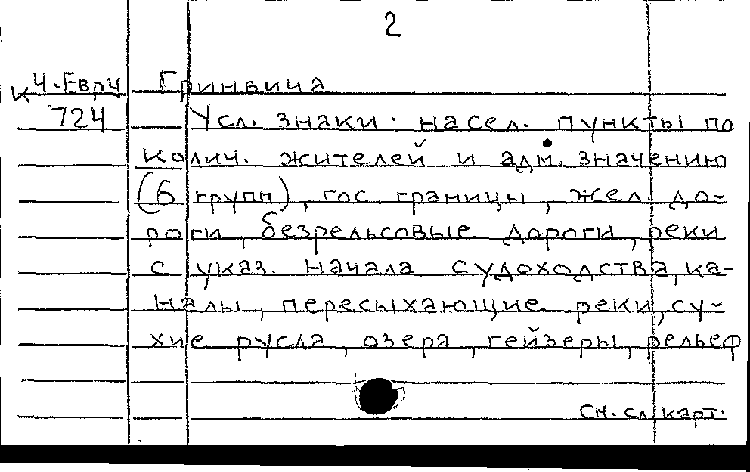 2
К Ч-Евр/4 Гринвича
724 Усл. знаки: насел. пункты по
колич. жителей и адм. значению
(6 групп), гос границы, жел. до-
роги, безрельсовые дороги, реки
с указ. начала судоходства, ка-
налы, пересыхающие реки, су-
хие русла, озера, гейзеры, рельеф
См. сл. карт.